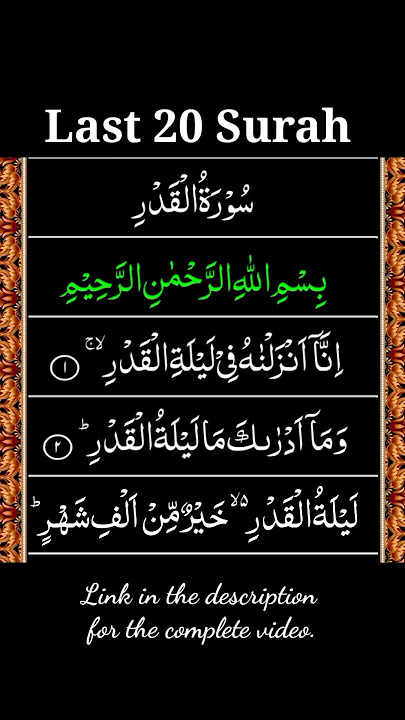 Last 20 Surah
سُوْرَةُ الْقَدْرِ
بِسْمِ اللّٰهِ الرَّحْمٰنِ الرَّحِيْمِ
اِنَّاۤ اَنْزَلْنٰهُ فِيْ لَيْلَةِ الْقَدْرِ ۚۖ ١
وَمَاۤ اَدْرٰىكَ مَا لَيْلَةُ الْقَدْرِ ؕ ٢
لَيْلَةُ الْقَدْرِ ۙ۬ خَيْرٌ مِّنْ اَلْفِ شَهْرٍ ؕ
Link in the description
for the complete video.